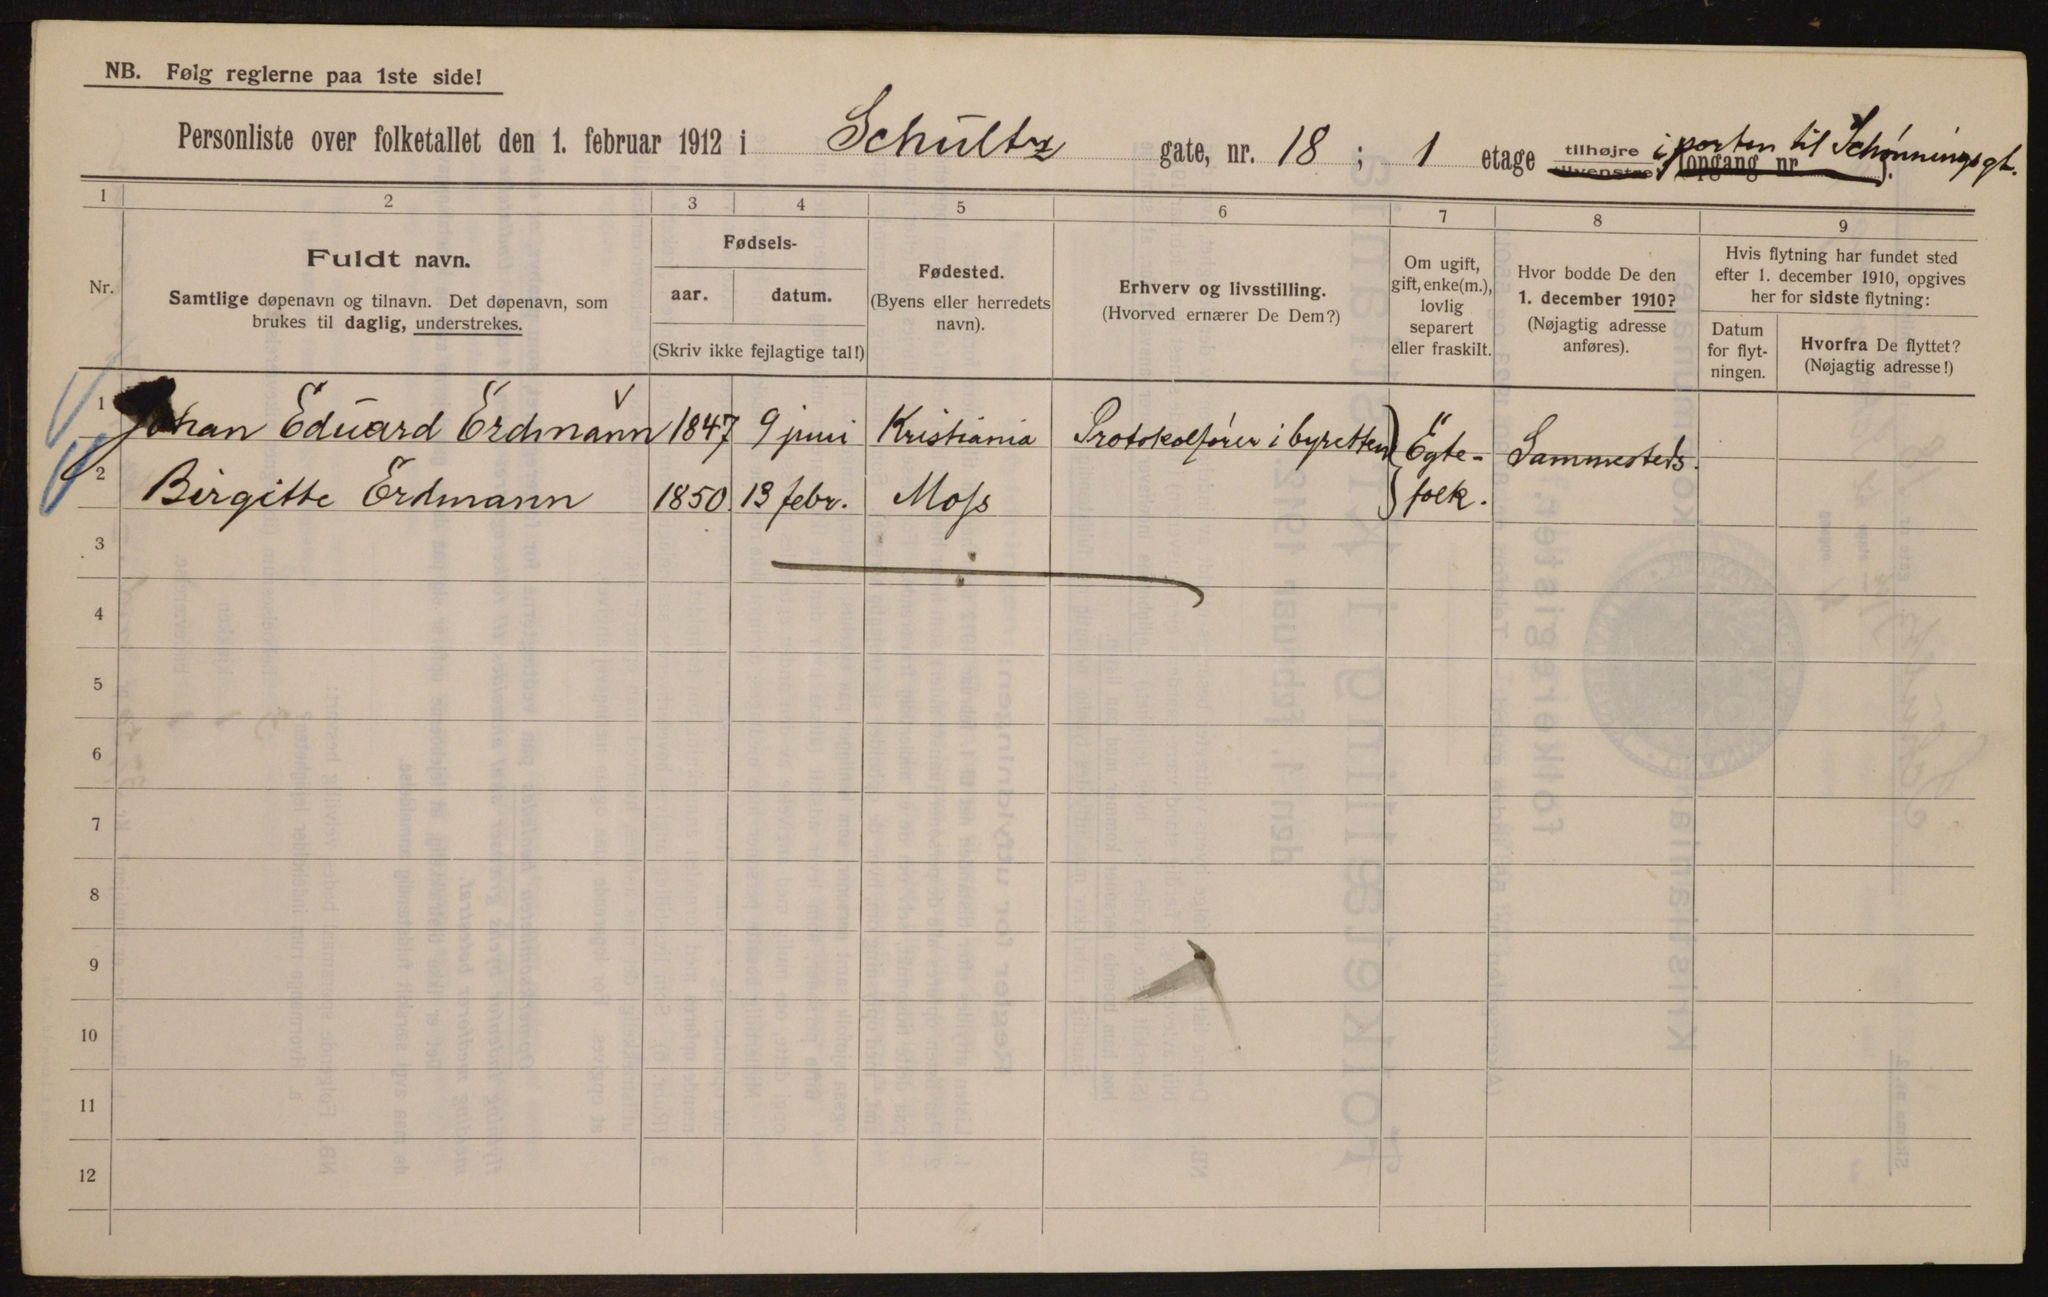 NB. Følg reglerne paa 1ste side!
Personliste over folketallet den 1. februar 1912 i Schultz gate, nr. 18 ; 1 etage tilhøjre tilvenstre i porten til Schønningsgt. (opgang nr. ).
1 2 3 4 5 6 7 8 9
Nr.
Fuldt navn.
Samtlige døpenavn og tilnavn. Det døpenavn, som
brukes til daglig, understrekes.
Fødsels-
aar. datum.
(Skriv ikke fejlagtige tal!)
Fødested.
(Byens eller herredets
navn).
Erhverv og livsstilling.
(Hvorved ernærer De Dem?)
Om ugift,
gift, enke(m.),
lovlig
separert
eller fraskilt.
Hvor bodde De den
1. december 1910?
(Nøjagtig adresse
anføres).
Hvis flytning har fundet sted
efter 1. december 1910, opgives
her for sidste flytning:
Datum
for flyt-
ningen.
Hvorfra De flyttet?
(Nøjagtig adresse!)
1 Johan Eduard Erdmann 1847 9 juni Kristiania Protokolfører i byretten Egte- Sammesteds.
2 Birgitte Erdmann 1850. 13 febr. Moss folk.
3
4
5
6
7
8
9
10
11
12